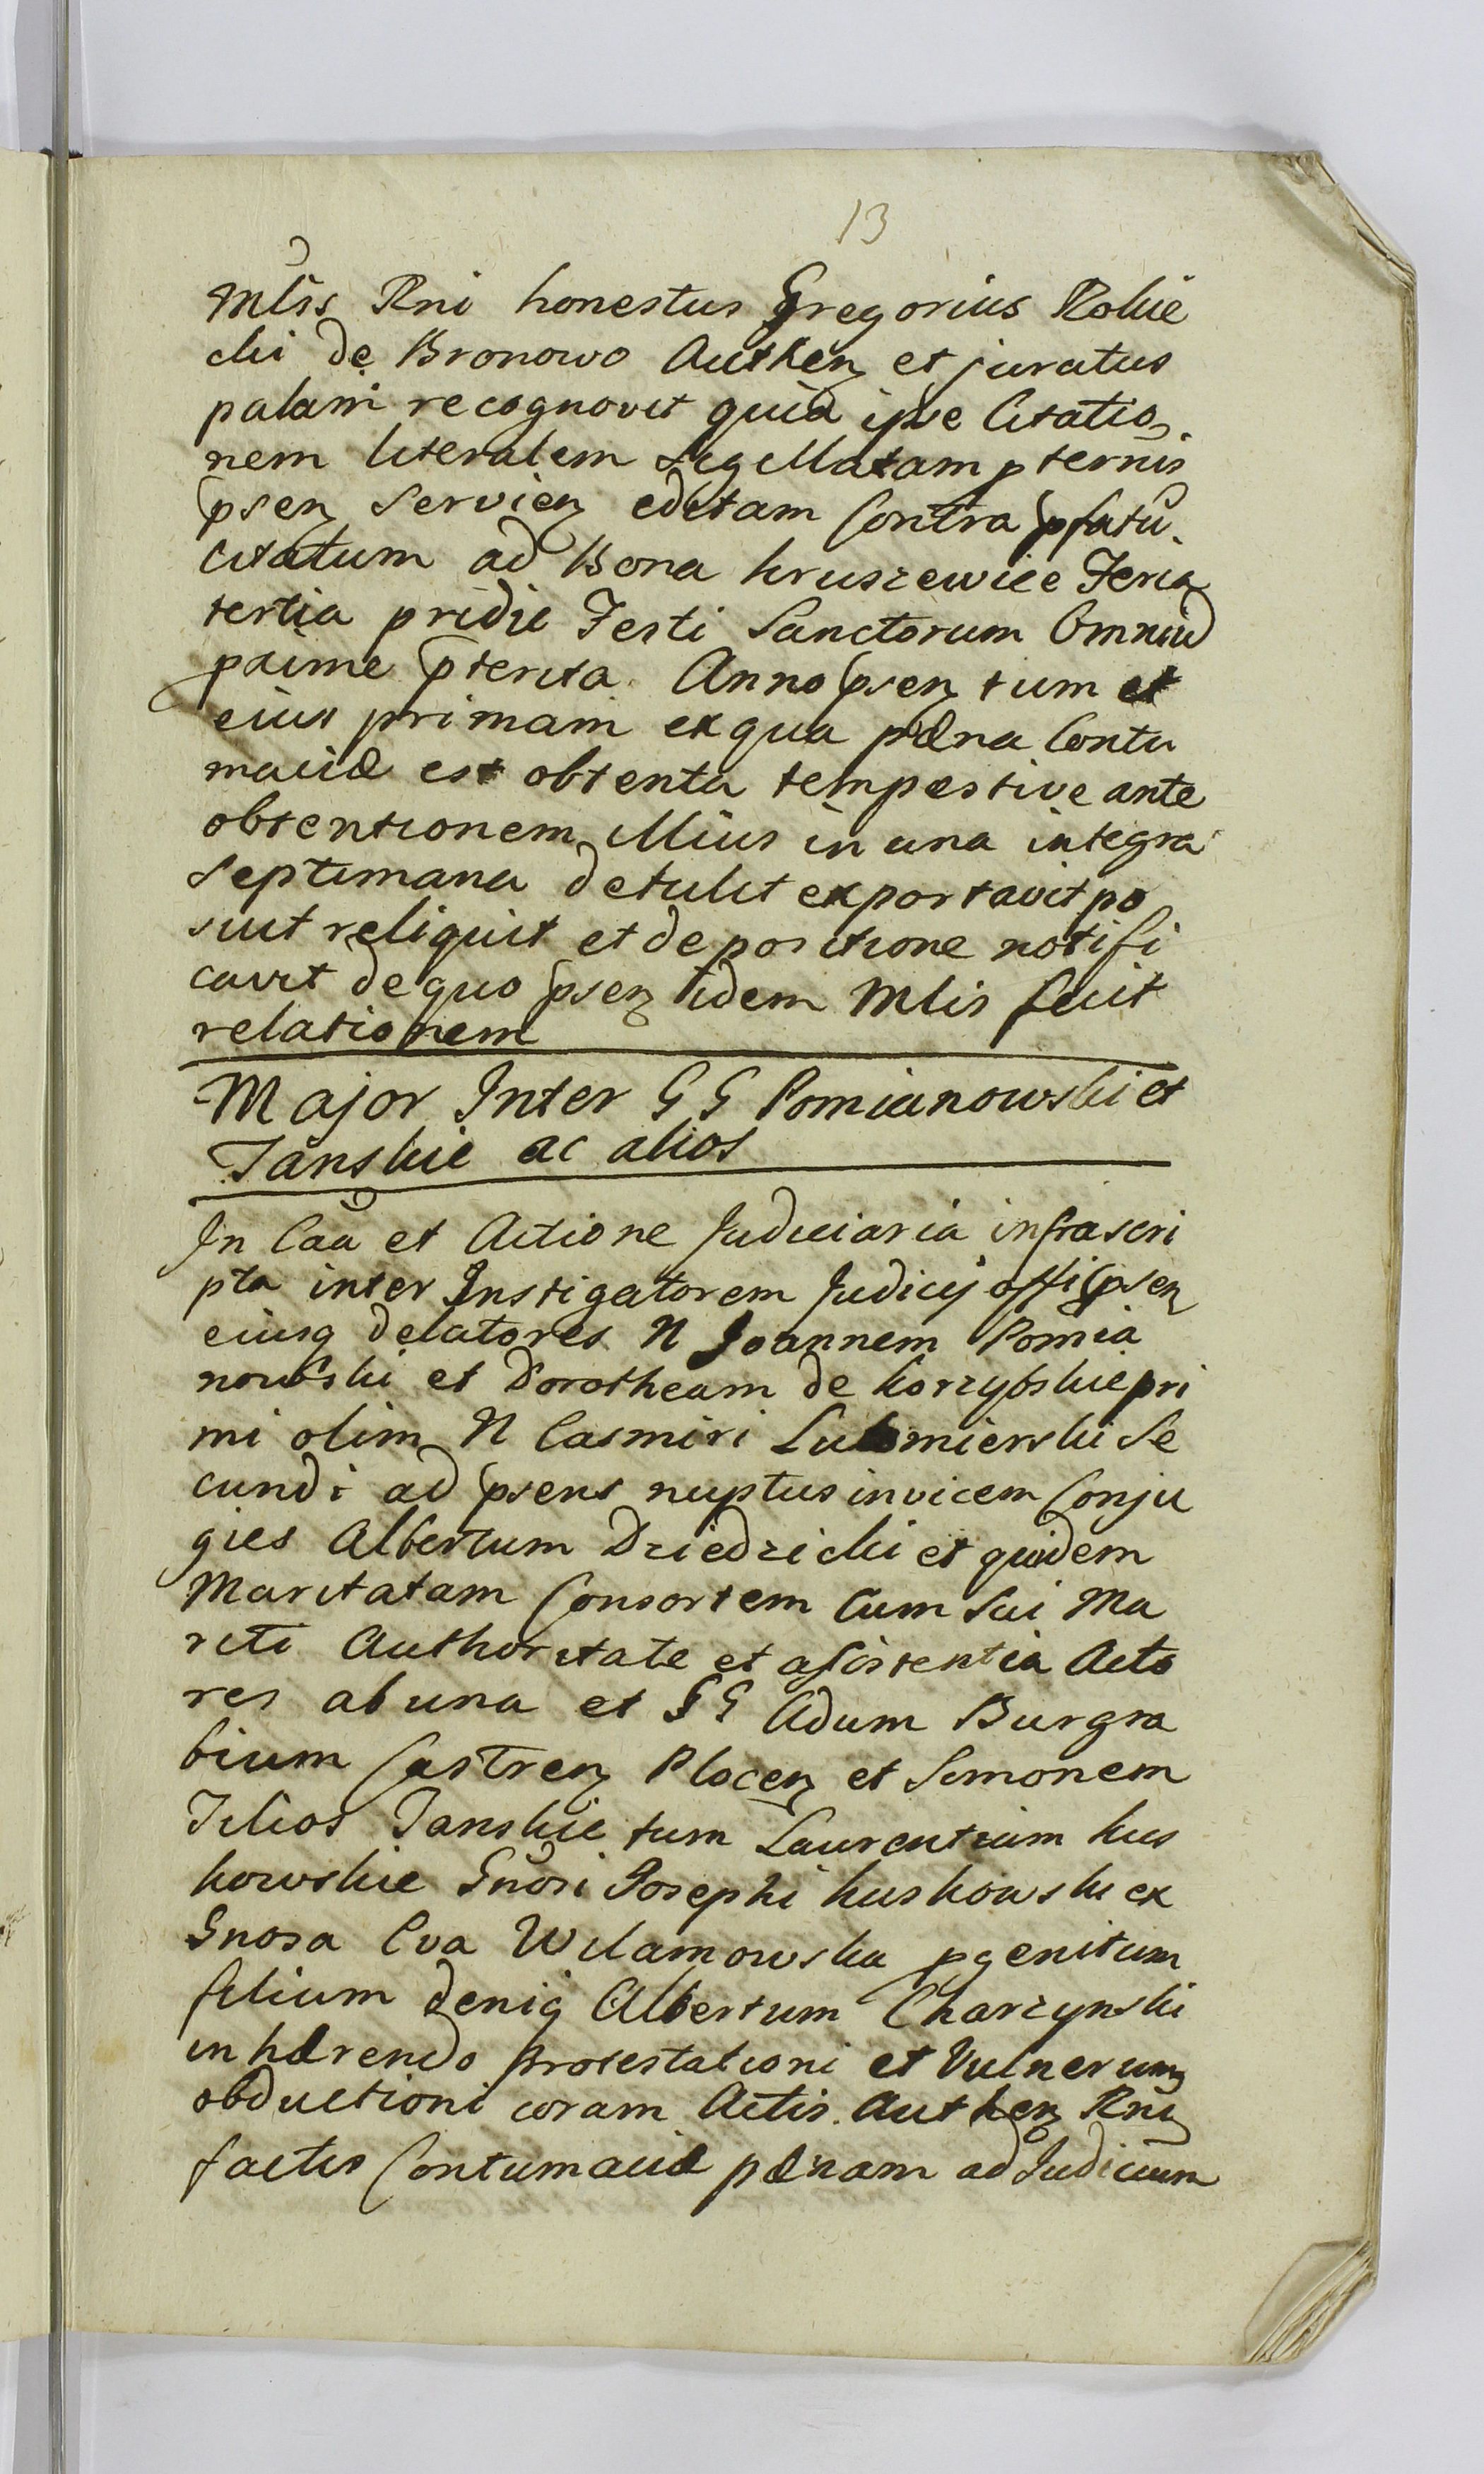 13
Mlis Rni honestus Gregorius Rokie
cki de Bronowo Authen et juratus
palam recognovit quia ipse Citatio
nem literalem sigillatam p ternis
psen servien editam Contra pfatū
citatum ad Bona kruszewice Feria
tertia pridie Festi Sanctorum Omniū
pxime pterita Anno psen tum et
eius primam ex qua pæna Contu
maciæ est obtenta tempestive ante
obtentionem illius in una integra
septimana detulit exportavit po
suit reliquit et de positione notifi
cavit de quo psen idem Mlis fecit
relationem
Major Inter G G Pomianowski et
Janskie ac alios
In Caā et Actione Judiciaria infrascri
pta inter Instigatorem Judicij offi psen
eiusq delatores N Joannem Pomia
nowski et Dorotheam de korzybskie pri
mi olim N Casmiri Lutomierski Se
cundi ad psens nuptus invicem Conju
gies Albertum Dziedzicki et quidem
Maritatam Consortem Cum sui Ma
riti Authoritate et assistentia Acto
res ab una et G G Adum Burgra
bium Castren Plocen et Simonem
Filios Janskie tum Laurentium kus
kowskie Gnosi Josephi kuskowski ex
Gnosa Eva Wilamowska pgenitum
filium deniq Albertum Charzynski
inhærendo protestationi et Vulnerum
obductioni coram Actis Authen Rni
factis Contumaciæ pænam ad Judicium